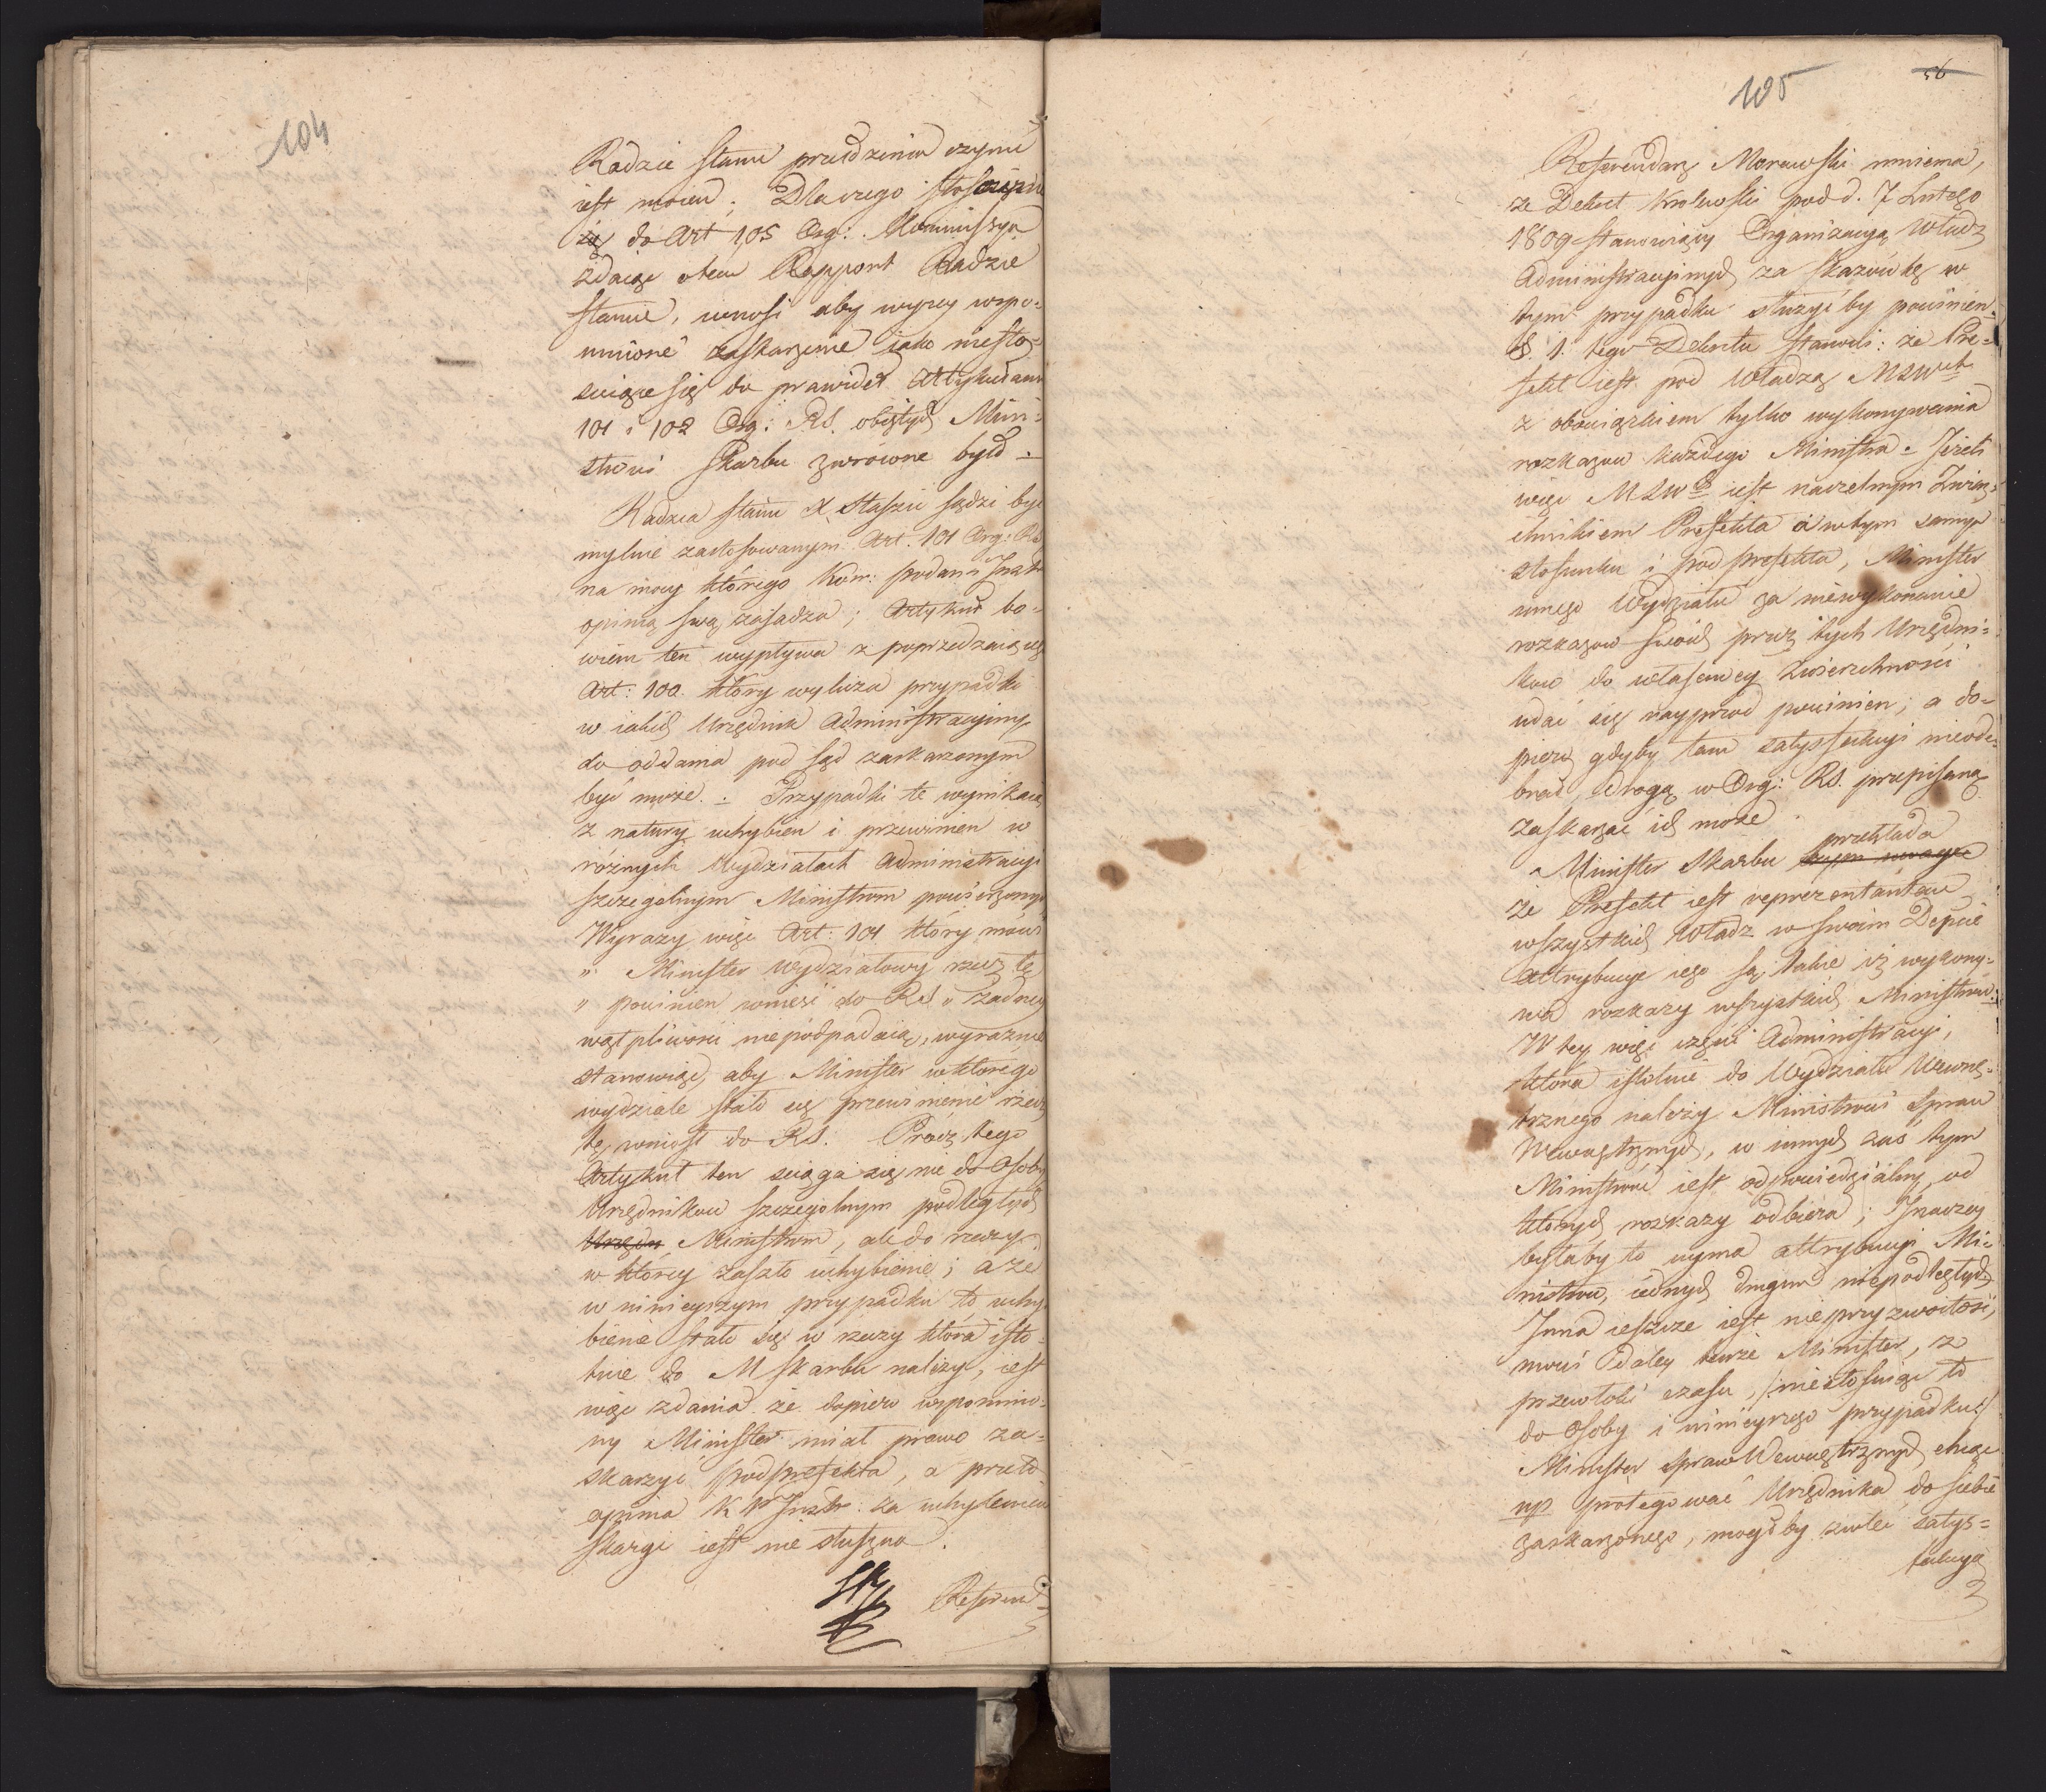 104
Radzie Stanu przedzenia czynić
iest mocen; Dlaczego stosuiąc
się do Art 105 Org: Kommissya
zdaiąc otem Rapport Radzie
Stanu, wnosi aby wyżey wspo-
mnione zaskarżenie iako niesto-
suiące się do prawideł Artykułami
101 i 102 Org: RS. obiętych Mini-
strowi Skarbu zwrócone było.
Radca Stanu X Staszic sądzi być
mylnie zastosowanym Art. 101 Org: RS
na mocy którego Kom: Podań i Instr
opinią swą zasadza; Artykuł bo-
wiem ten wypływa z poprzedzaiącego
Art: 100. który wylicza przypadki
w iakich Urzędnik Administracyiny
do oddania pod Sąd zaskarżonym
być może. Przypadki te wynikaią
z natury uchybień i przewinień w
różnych Wydziałach Administracyi
szczególnym Ministrom powierzonych
Wyrazy więc Art: 101 który mówi
" Minister Wydziałowy rzecz tę
" powinien wnieść do RS " żadney
wątpliwości niepodpadaią, wyraźnie
stanowiąc, aby Minister w którego
wydziale stało się przewinienie rzecz
tę wniosł do RS. Prócz tego
Artykuł ten ściąga się nie do Osoby
Urzędników szczegolnym podległych
Urzędn Ministrom, ale do rzeczy
w którey zaszło uchybienie; a że
w ninieyszym przypadku to uchy-
bienie stało się w rzeczy która isto-
tnie do M Skarbu należy, iest
więc zdania że dopiero wspomnio-
ny Minister miał prawo za-
skarżyć Podprefekta, a przeto
opinia K P Instr: za uchyleniem
Skargi iest nie słuszna.
Referend
105
56
Referendarz Morawski mniema,
że Dekret Krolewski pod d. 7 Lutego
1809 stanowiący Organizacyą Władz
Administracyinych za skazówkę w
tym przypadku służyć by powinien.
§. 1. tego Dekretu stanowi: że Pre-
fekt iest pod Władzą MSWch
z obowiązkiem tylko wykonywania
rozkazow każdego Ministra. Jeżeli
więc MSWch iest naczelnym Zwierz-
chnikiem Prefekta a w tym samym
stosunku i Podprefekta, Minister
innego Wydziału za niewykonanie
rozkazow swoich przez tych Urzędni-
kow do własciwey Zwierzchności
udać się nayprzod powinien; a do-
piero gdyby tam satysfakcyi nieode-
brał, drogą w Org: RS. przepisaną
zaskarzać ich może
przekłada
Minister Skarbu
że Prefekt iest reprezentantem
wszystkich Władz w swoim Depcie
Attrybucye iego są takie iż wykony-
wa rozkazy wszystkich Ministrów:
W tey więc części Administracyi,
która istotnie do Wydziału Wewnę-
trznego należy Ministrowi Spraw
Wewnętrznych, w innych zaś tym
Ministrom iest odpowiedzialny, od
których rozkazy odbiera; Inaczey
byłaby to uyma attrybucyi Mi-
nistrow, iednych drugim niepodległych
Inna ieszcze iest nieprzyzwoitość,
mówi daley tenże Minister, z
przewłoki czasu, /niestosuiąc to
do Osoby i ninieyszego przypadku:/
Minister Spraw Wewnętrznych chcąc
np protegować Urzędnika do siebie
zaskarżonego, mogłby zwlec satys-
fakcyą